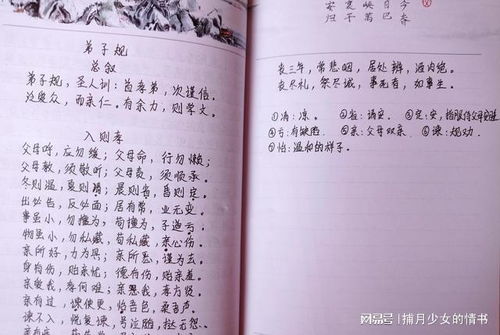 弟子规
总叙
弟子规，圣人训：首孝弟，次谨信。
泛爱众，而亲仁。有余力，则学文。
入则孝
父母呼，应勿缓；父母命，行勿懒；
父母教，须敬听；父母责，须顺承。
冬则温，夏则凊；晨则省，昏则定。
出必告，反必面；居有常，业无变。
事虽小，勿擅为；苟擅为，子道亏。
物虽小，勿私藏；苟私藏，亲心伤。
亲所好，力为具；亲所恶，谨为去。
身有伤，贻亲忧；德有伤，贻亲羞。
亲爱我，孝何难；亲恶我，孝方贤。
亲有过，谏使更，怡吾色，柔吾声。
谏不入，悦复谏，号泣随，挞无怨。
丧三年，常悲咽，居处辨，酒肉绝。
丧尽礼，祭尽诚，事死者，如事生。
①凊：凉。 ②省：请安。 ③定：安，
④亏：有缺陷。 ⑤亲：父母双亲。 ⑥谏：规劝。
⑦怡：温和的样子。
搜狐号@捕月少女的情书